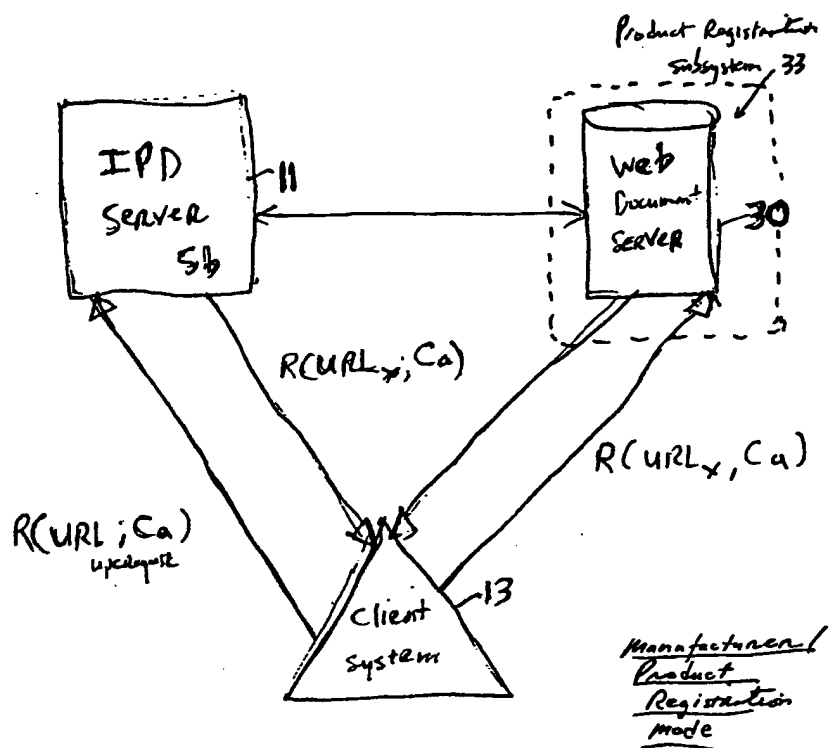 Product Registration
subsystem 33
IPD
SERVER
5b
11
Web
Document
SERVER
30
R(URLx; Ca)
R(URLx, Ca)
R(URL; Ca)
Client
System
13
Manufacturer/
Product
Registration
mode